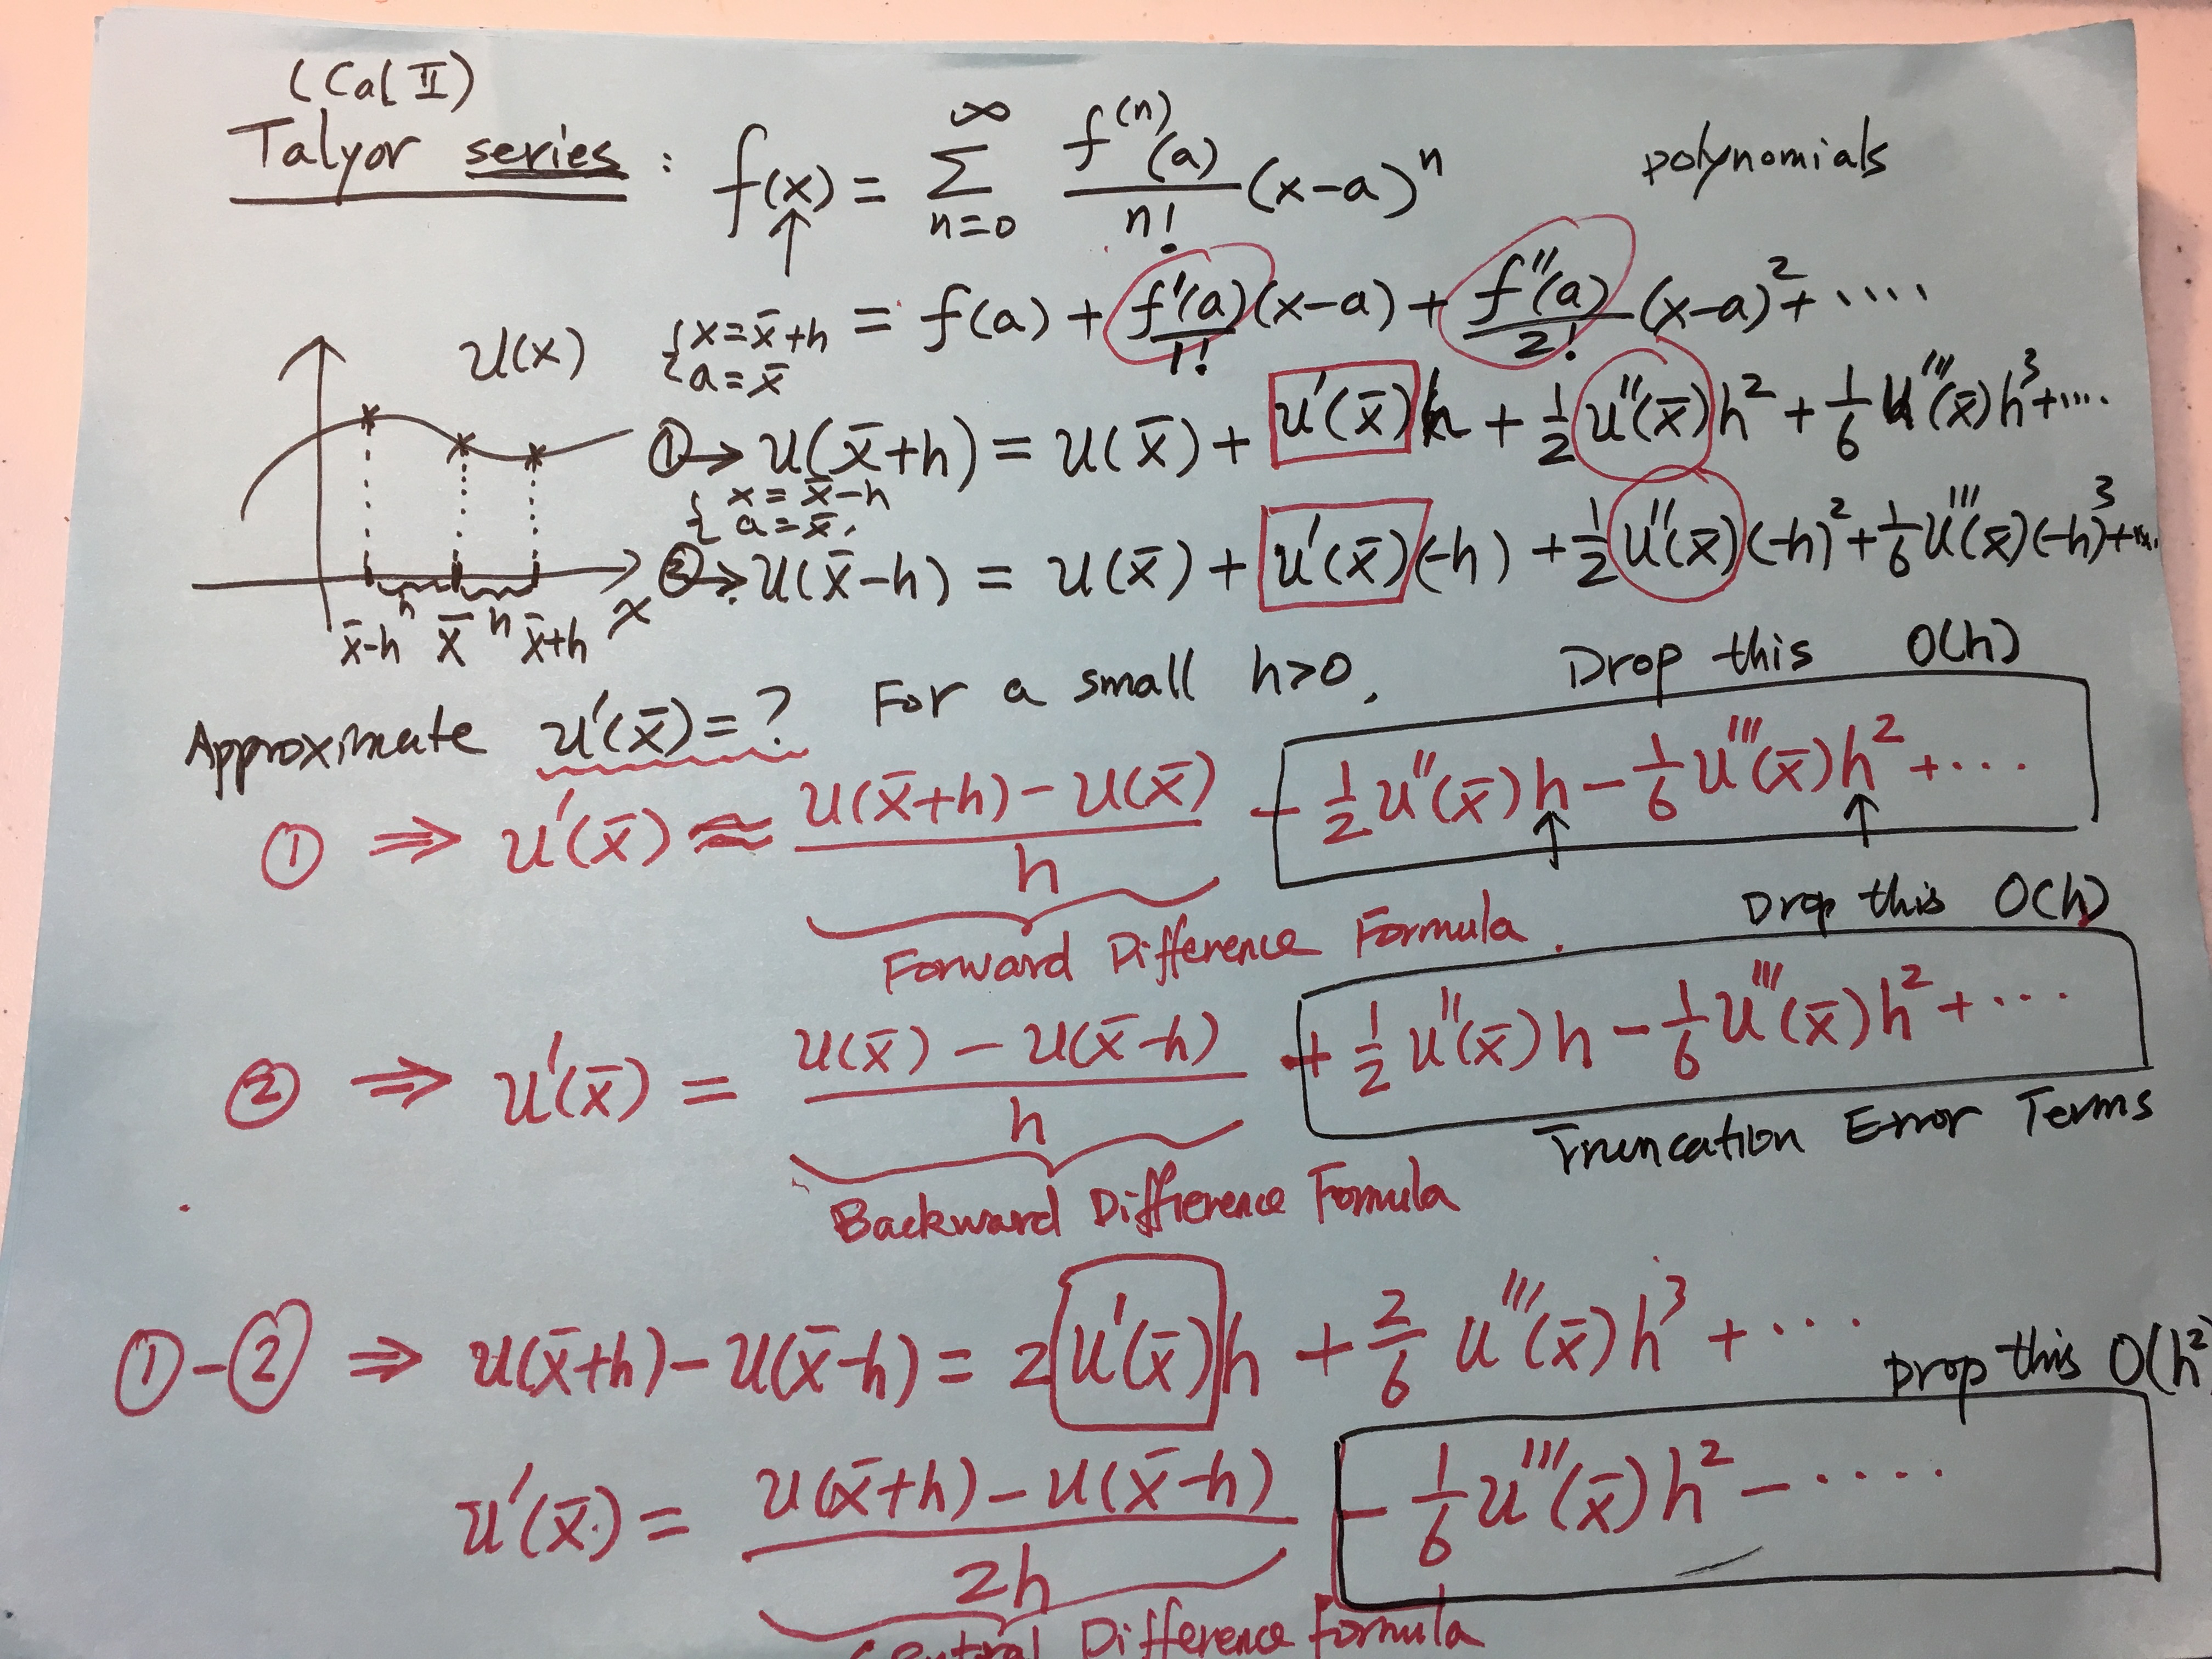 (Cal II)
Talyor series : f(x) = ∑_{n=0}^{∞} f^{(n)}(a)/n! (x-a)^n polynomials
↑
{x = x̄+h
{a = x̄
= f(a) + f'(a)/1! (x-a) + f''(a)/2! (x-a)² + ....
u(x)
① → u(x̄+h) = u(x̄) + u'(x̄)h + 1/2 u''(x̄)h² + 1/6 u'''(x̄)h³ + ....
{x = x̄-h
{a = x̄
② → u(x̄-h) = u(x̄) + u'(x̄)(-h) + 1/2 u''(x̄)(-h)² + 1/6 u'''(x̄)(-h)³ + ...
h h x
x̄-h x̄ x̄+h
Approximate u'(x̄) = ? For a small h>0,
Drop this O(h)
① ⇒ u'(x̄) ≈ (u(x̄+h) - u(x̄))/h - 1/2 u''(x̄)h - 1/6 u'''(x̄)h² + ....
↑ ↑
Forward Difference Formula.
Drop this O(h)
② ⇒ u'(x̄) = (u(x̄) - u(x̄-h))/h + 1/2 u''(x̄)h - 1/6 u'''(x̄)h² + ...
Truncation Error Terms
Backward Difference Formula
① - ② ⇒ u(x̄+h) - u(x̄-h) = 2u'(x̄)h + 2/6 u'''(x̄)h³ + ....
Drop this O(h²
u'(x̄) = (u(x̄+h) - u(x̄-h))/2h - 1/6 u'''(x̄)h² - .....
Central Difference Formula